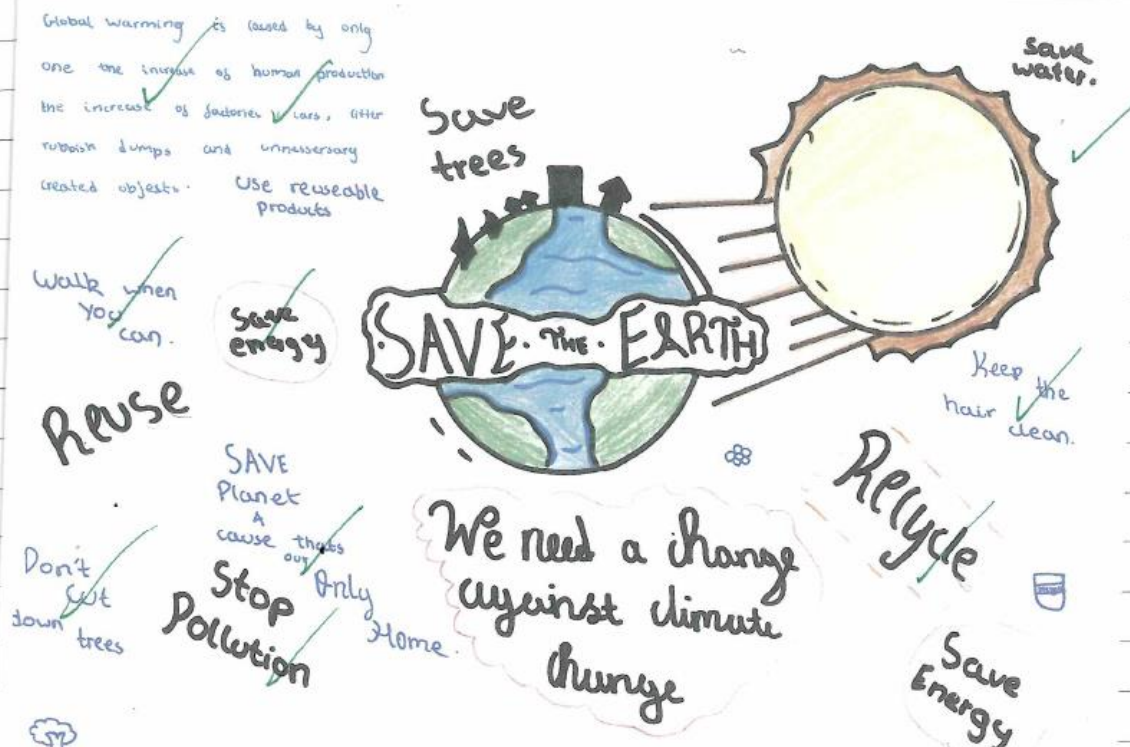 Global warming is caused by only
one the increase of human production
the increase of factories, cars, litter
rubbish dumps and unnessersary
created objects.
Use reuseable
products
Save
trees
save
water.
Walk when
you
can.
Save
energy
SAVE · THE · EARTH
Keep the
hair clean.
Reuse
SAVE
Planet
A
cause thats
our
Only
Home.
Recycle
We need a change
against climate
change
Don't
cut
down trees
Stop
Pollution
Save
Energy